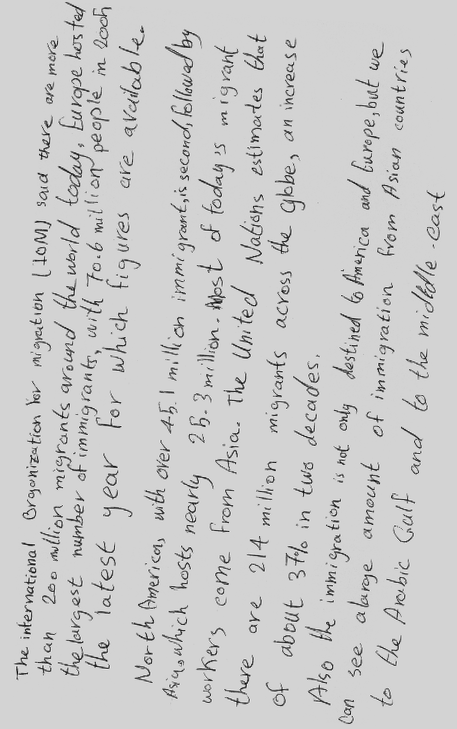 The international Organization for migration (IOM) said there are more
than 200 million migrants around the world today, Europe hosted
the largest number of immigrants, with 70.6 million people in 2005
the latest year for which figures are available.
North American, with over 45.1 million immigrant, is second, followed by
Asia, which hosts nearly 25.3 million. Most of today's migrant
workers come from Asia. The United Nations estimates that
there are 214 million migrants across the globe, an increase
of about 37% in two decades.
Also the immigration is not only destined to America and Europe, but we
can see a large amount of immigration from Asian countries
to the Arabic Gulf and to the middle-east